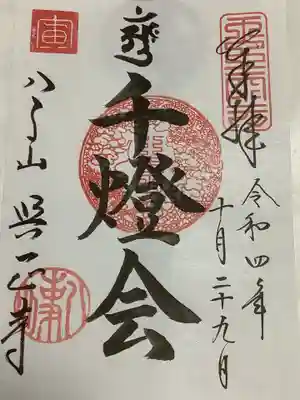 奉拝
令和四年
十月二十九日
千燈会
八事山 興正寺